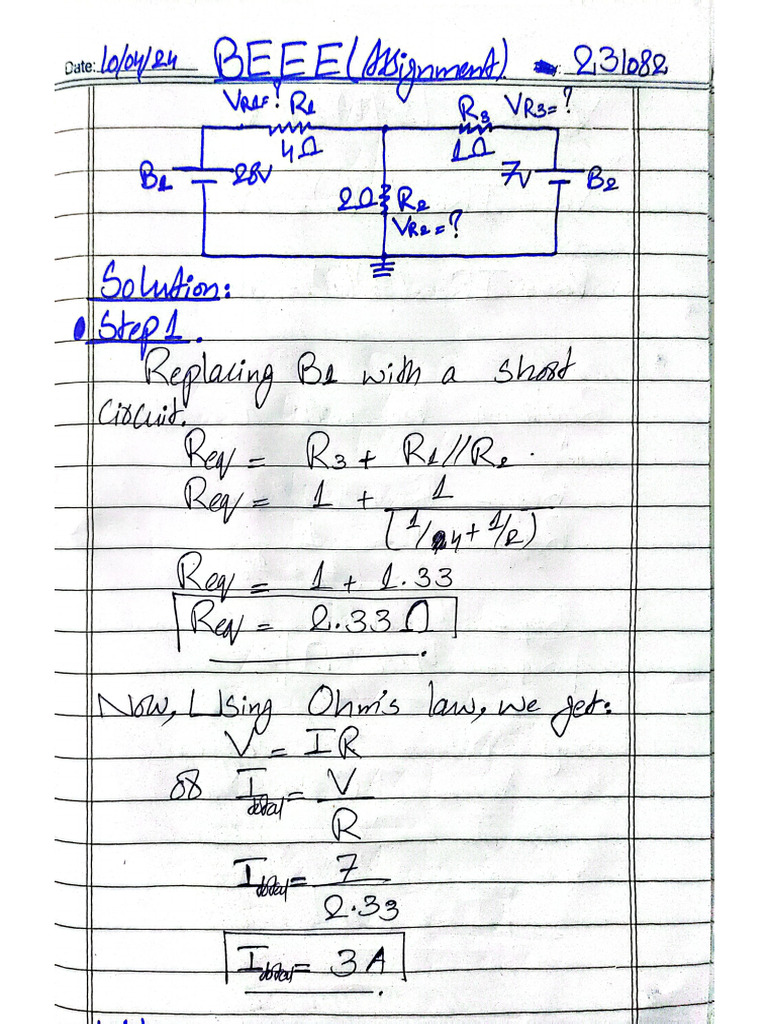 Date: 10/04/24 BEEE (Assignment) 231082
VR1=? R1 R3 VR3=?
4Ω 1Ω
B1 28V 7V B2
2Ω R2
VR2=?
Solution:
• Step 1.
Replacing B1 with a short
circuit.
Req = R3 + R1//R2.
Req = 1 + 1
(1/4 + 1/2)
Req = 1 + 1.33
Req = 2.33 Ω
Now, Using Ohm's law, we get:
V = IR
or Itotal = V
R
Itotal = 7
2.33
Itotal = 3A